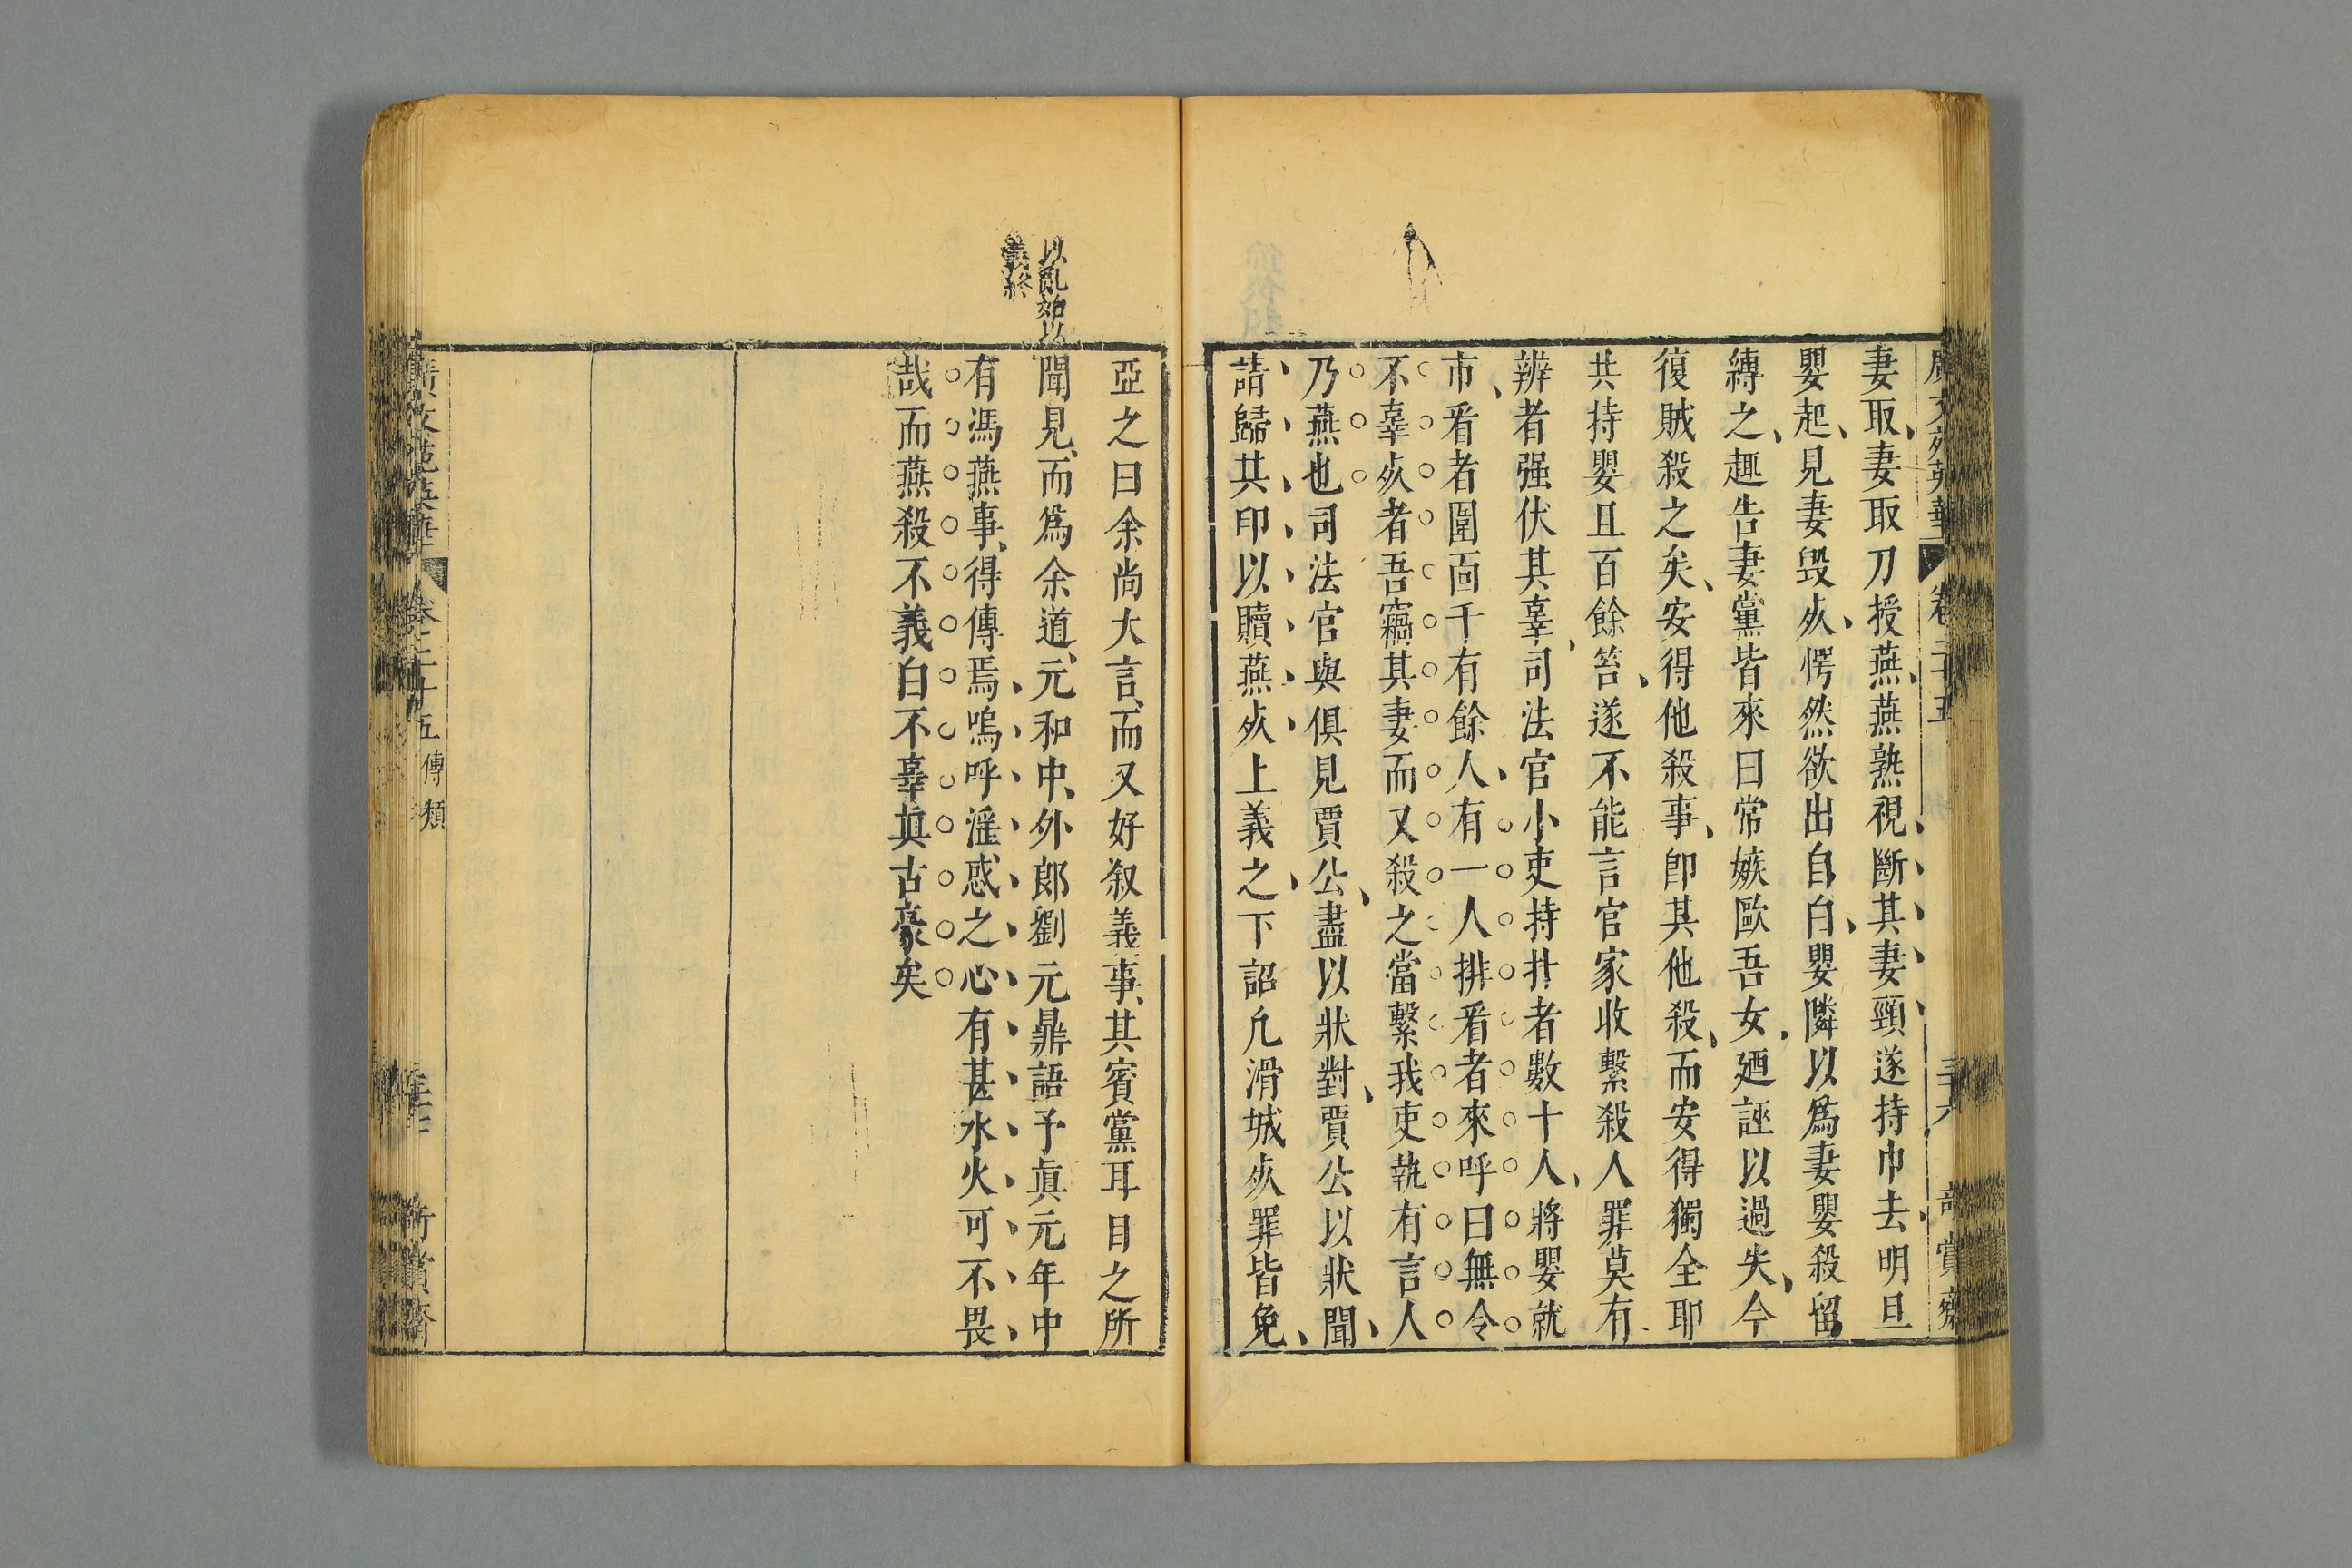 廣文苑英華 卷二十五 三十六 賞齋
妻取妻取刀授燕燕熟視斷其妻頸遂持巾去明旦
嬰起見妻毁㱙愕然欲出自白嬰隣以爲妻嬰殺留
縛之趣告妻黨皆來曰常嫉毆吾女廼誣以過失今
復賊殺之矣安得他殺事卽其他殺而安得獨全耶
共持嬰且百餘笞遂不能言官家收繫殺人罪莫有
辨者强伏其辜司法官小吏持扑者數十人將嬰就
市看者圍面千有餘人有一人排看者來呼曰無令
不辜㱙者吾竊其妻而又殺之當繫我吏執有言人
乃燕也司法官與俱見賈公盡以狀對賈公以狀聞
請歸其印以贖燕㱙上義之下詔凡滑城㱙罪皆免
以亂始以
義終
亞之曰余尚大言而又好叙義事其賓黨耳目之所
聞見而爲余道元和中外郎劉元鼎語予眞元年中
有馮燕事得傳焉嗚呼滛惑之心有甚水火可不畏
哉而燕殺不義白不辜眞古豪矣
廣文苑英華 卷二十五 傳類 三十七 賞齋